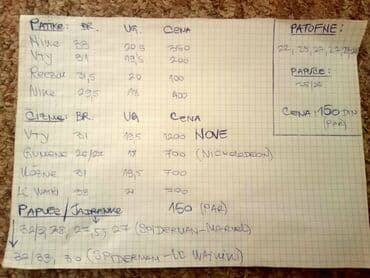 PATIKE: BR. UG. CENA
Nike 33 20,5 350
Vty 31 19,5 200
Reebok 31,5 20 400
Nike 29,5 18 400
ČIZME: BR. UG CENA
Vty 31 19,5 1200 NOVE
Gumene 26/27 17 700 (Nickelodeon)
Kožne 31 19,5 700
LC Waiki 33 21 700
PAPUČE/JAPANKE 150 (PAR)
27 (SPIDERMAN-MARVEL)
32/33, 30 (SPIDERMAN-LC WAIKIKI)
PATOFNE:
PAPUČE:
25/26
CENA: 150 DIN
(PAR)